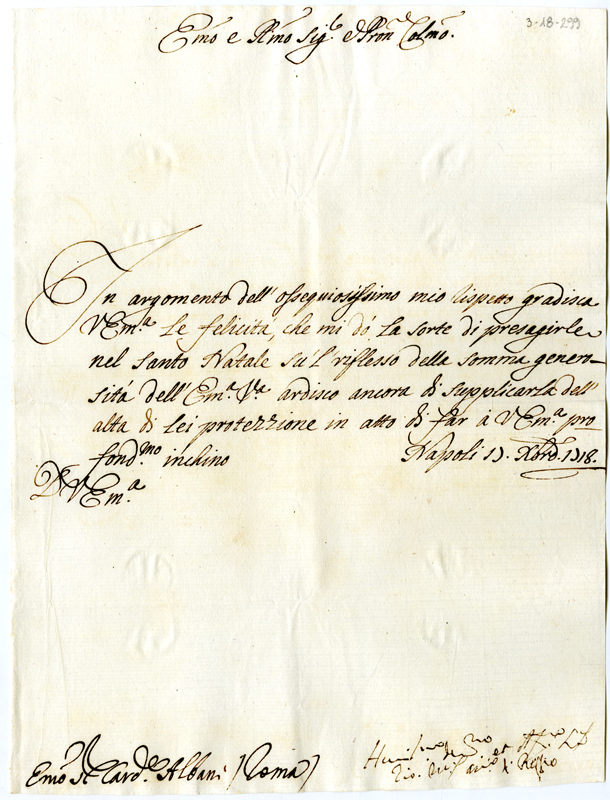 3-18-299
Emo e Rmo Sig.r e Pron Colmo.
In argomento dell' ossequiosissimo mio rispetto gradisca
VEm.a le felicità, che mi dò la sorte di presagirle
nel Santo Natale sù'l riflesso della somma genero-
sità dell' Em.a V.a ardisco ancora di supplicarla dell'
alta di lei protezzione in atto di far à VEm.a pro
fond.mo inchino Napoli 17. Xbre 1718.
D VEm.a
Emo S.r Card. Albani (Roma)